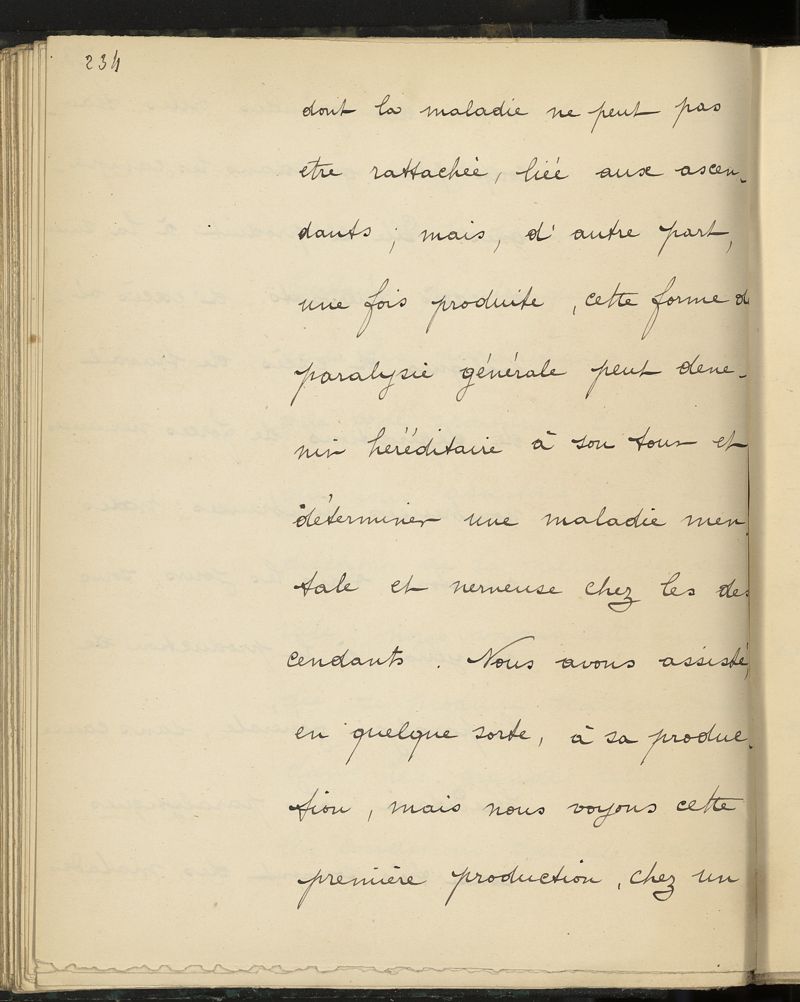 234
dont la maladie ne peut pas
etre rattachée, liée aux ascen-
dants ; mais, d'autre part,
une fois produite, cette forme de
paralysie générale peut deve-
nir héréditaire à son tour et
déterminer une maladie men
tale et nerveuse chez les des
cendants. Nous avons assisté,
en quelque sorte, à sa produc-
tion, mais nous voyons cette
première production, chez un